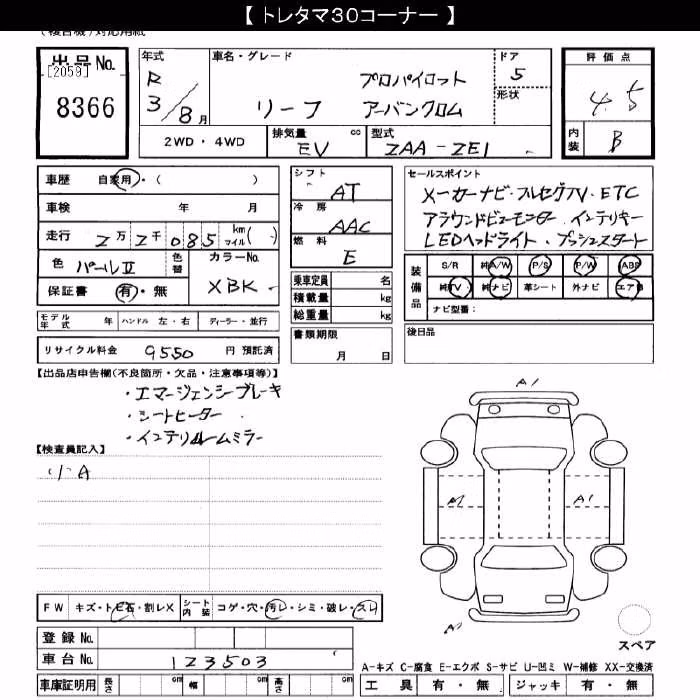 【 トレタマ30コーナー 】
(複合機)対応用紙
出品No. [2059] 8366
年式 R 3/8月
車名・グレード リーフ プロパイロット アーバンクロム
ドア 5
形状
評価点 4.5
内装 B
2WD・4WD
排気量 cc EV
型式 ZAA-ZE1
車歴 自家用・( )
車検 年 月
走行 2万2千085 km マイル( )
色 パールⅡ 色替
カラーNo. XBK
保証書 有・無
シフト AT
冷房 AAC
燃料 E
乗車定員 名
積載量 kg
総重量 kg
セールスポイント
メーカーナビ・フルセグTV・ETC
アラウンドビューモニター・インテリキー
LEDヘッドライト・プッシュスタート
装備品 S/R 純A/W P/S P/W ABS
純TV 純ナビ 革シート 外ナビ エアB
ナビ型番:
モデル年式 年 ハンドル 左・右 ディーラー・並行
書類期限 月 日
後日品
リサイクル料金 9550 円 預託済
【出品店申告欄(不良箇所・欠品・注意事項等)】
・エマージェンシーブレーキ
・シートヒーター
・インテリルームミラー
【検査員記入】
小A
A1
A1
A1
A1
FW キズ・トビ石・割レX
シート内装 コゲ・穴・汚レ・シミ・破レ・スレ
登録No.
車台No. 123503
車庫証明用 長さ cm 幅 cm 高さ cm
スペア
A-キズ C-腐食 E-エクボ S-サビ U-凹ミ W-補修 XX-交換済
工具 有・無 ジャッキ 有・無